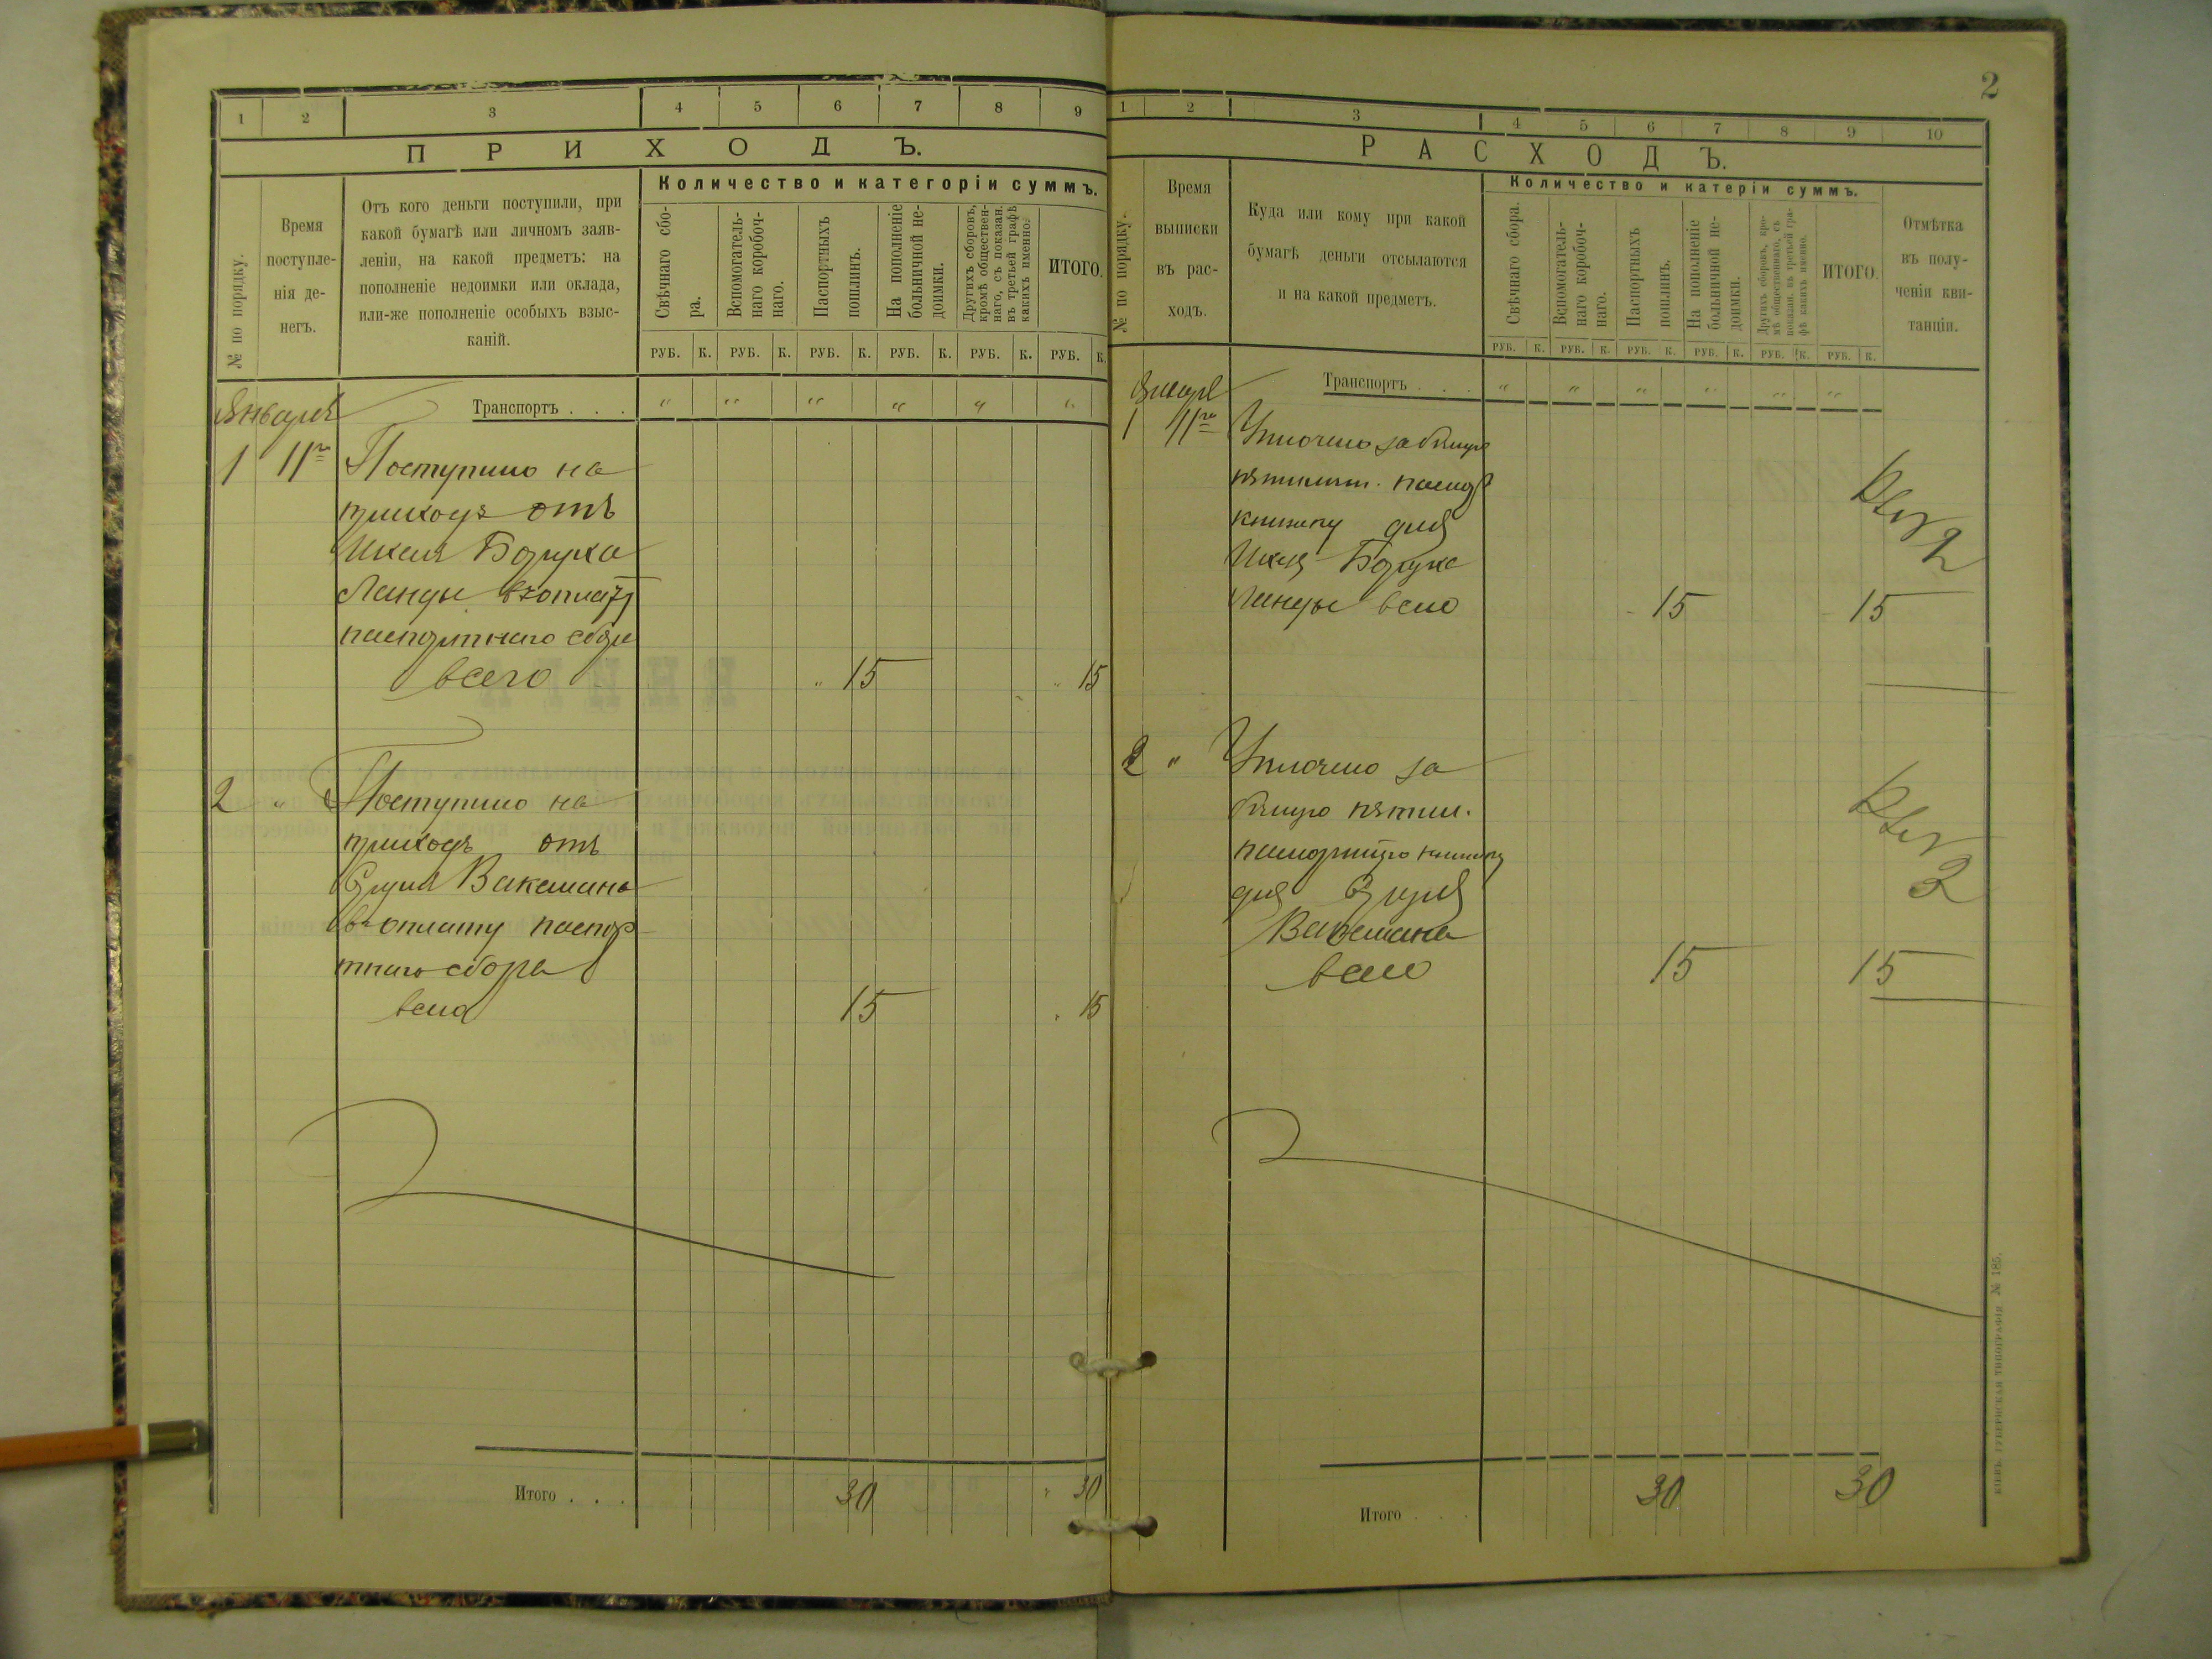 1 2 3 4 5 6 7 8 9
ПРИХОДЪ.
№ по порядку.
Время
поступле-
нія де-
негъ.
Отъ кого деньги поступили, при
какой бумагѣ или личномъ заяв-
леніи, на какой предметъ: на
пополненіе недоимки или оклада,
или-же пополненіе особыхъ взыс-
каній.
Количество и категоріи суммъ.
Свѣчнаго сбо-
ра.
Вспомогатель-
наго коробоч-
наго.
Паспортныхъ
пошлинъ.
На пополненіе
больничной не-
доимки.
Другихъ сборовъ,
кромѣ обществен-
наго, съ показан.
въ третьей графѣ
какихъ именно.
ИТОГО.
РУБ. К. РУБ. К. РУБ. К. РУБ. К. РУБ. К. РУБ. К.
Январь
Транспортъ . . . " " " " " "
1 11го Поступило на
приходъ отъ
Икеля Боруха
Ланды въ оплату
паспортнаго сбора
всего " 15 " 15
2 " Поступило на
приходъ отъ
Вакемана
въ оплату паспор
тнаго сбора
всего 15 " 15
Итого . . . 30 " 30
2
1 2 3 4 5 6 7 8 9 10
РАСХОДЪ.
№ по порядку.
Время
выписки
въ рас-
ходъ.
Куда или кому при какой
бумагѣ деньги отсылаются
и на какой предметъ.
Количество и катеріи суммъ.
Свѣчнаго сбора.
Вспомогатель-
наго коробоч-
наго.
Паспортныхъ
пошлинъ.
На пополненіе
больничной не-
доимки.
Другихъ сборовъ, кро-
мѣ общественнаго, съ
показан. въ третьей гра-
фѣ какихъ именно.
ИТОГО.
Отмѣтка
въ полу-
ченіи кви-
танціи.
РУБ. К. РУБ. К. РУБ. К. РУБ. К. РУБ. К. РУБ. К.
Январь
Транспортъ . . . " " " " " "
1 11го Уплочено за
пятилѣт. паспор
книжку для
Боруха
Ланды всего 15 15
2
2 " Уплочено за
пятил.
книжку
для
Вакемана
всего 15 15
3
Итого . . . 30 30
КІЕВЪ. ГУБЕРНСКАЯ ТИПОГРАФІЯ № 185.